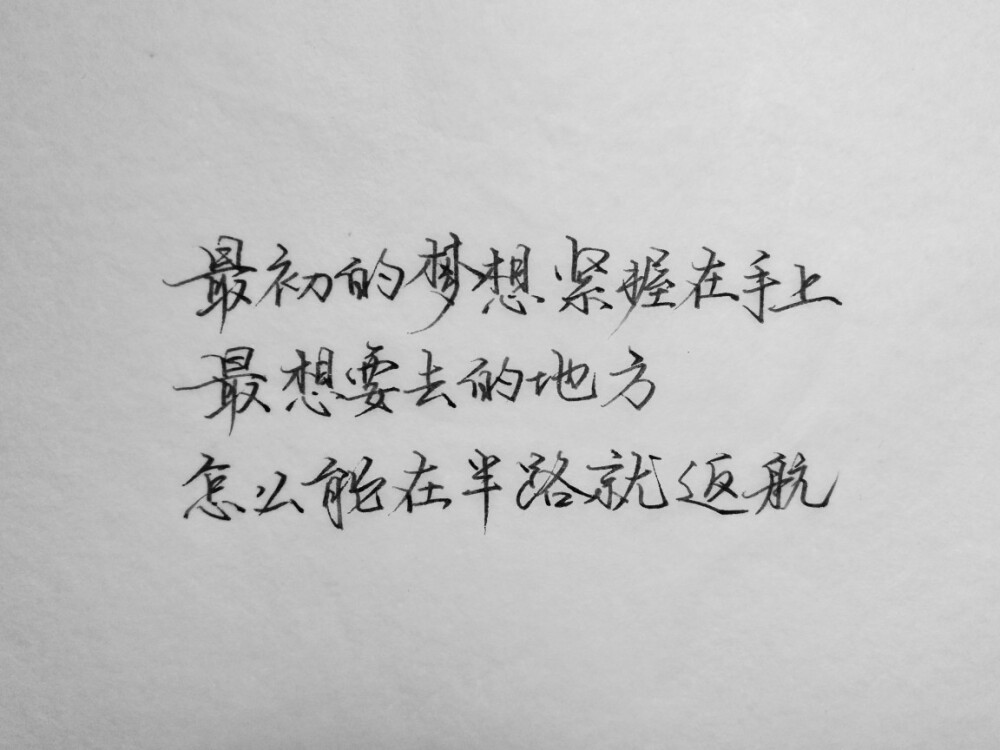 最初的梦想紧握在手上
最想要去的地方
怎么能在半路就返航